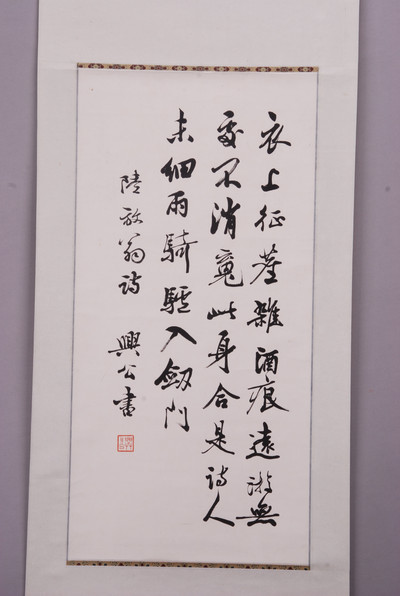 衣上征塵雜酒痕遠游無
處不消魂此身合是詩人
未細雨騎驢入劔門
陸放翁詩 興公書